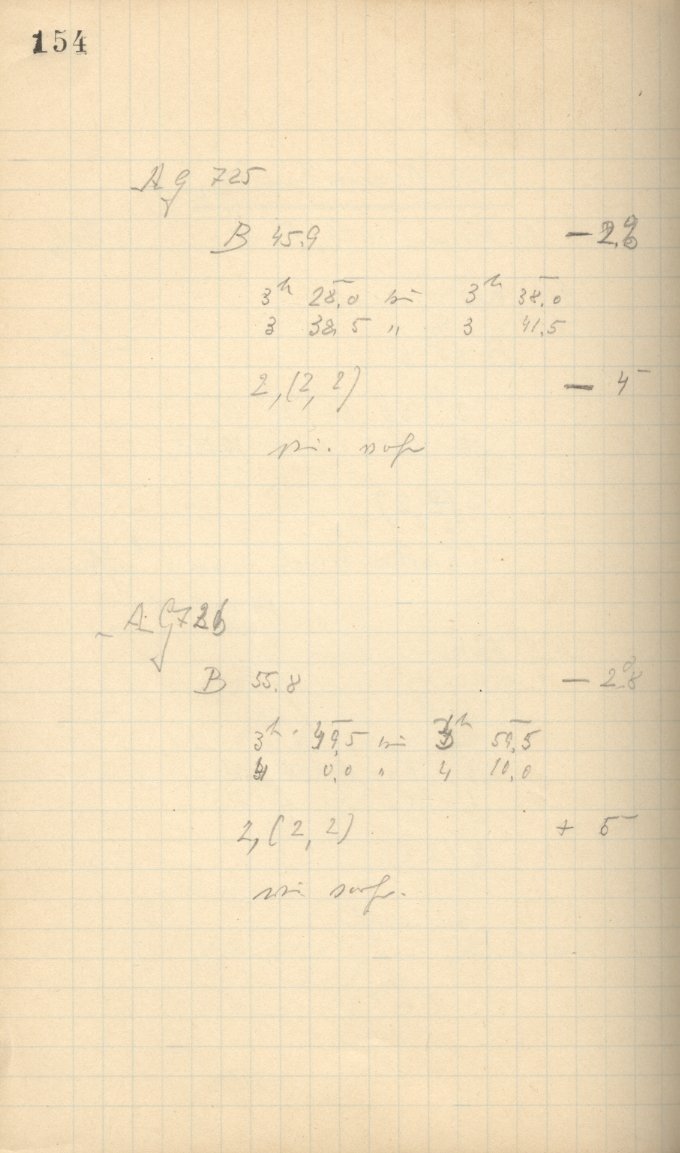 154
AG 725
B 45.9 — 2.8
3h 28,0 bis 3h 38,0
3 38,5 " 3 41,5
2,(2,2) — 4
wie vorh
AG 726
B 55.8 — 2.8
3h 49,5 bis 3h 59,5
4 0,0 " 4 10,0
2,(2,2) + 5
wie vorh.